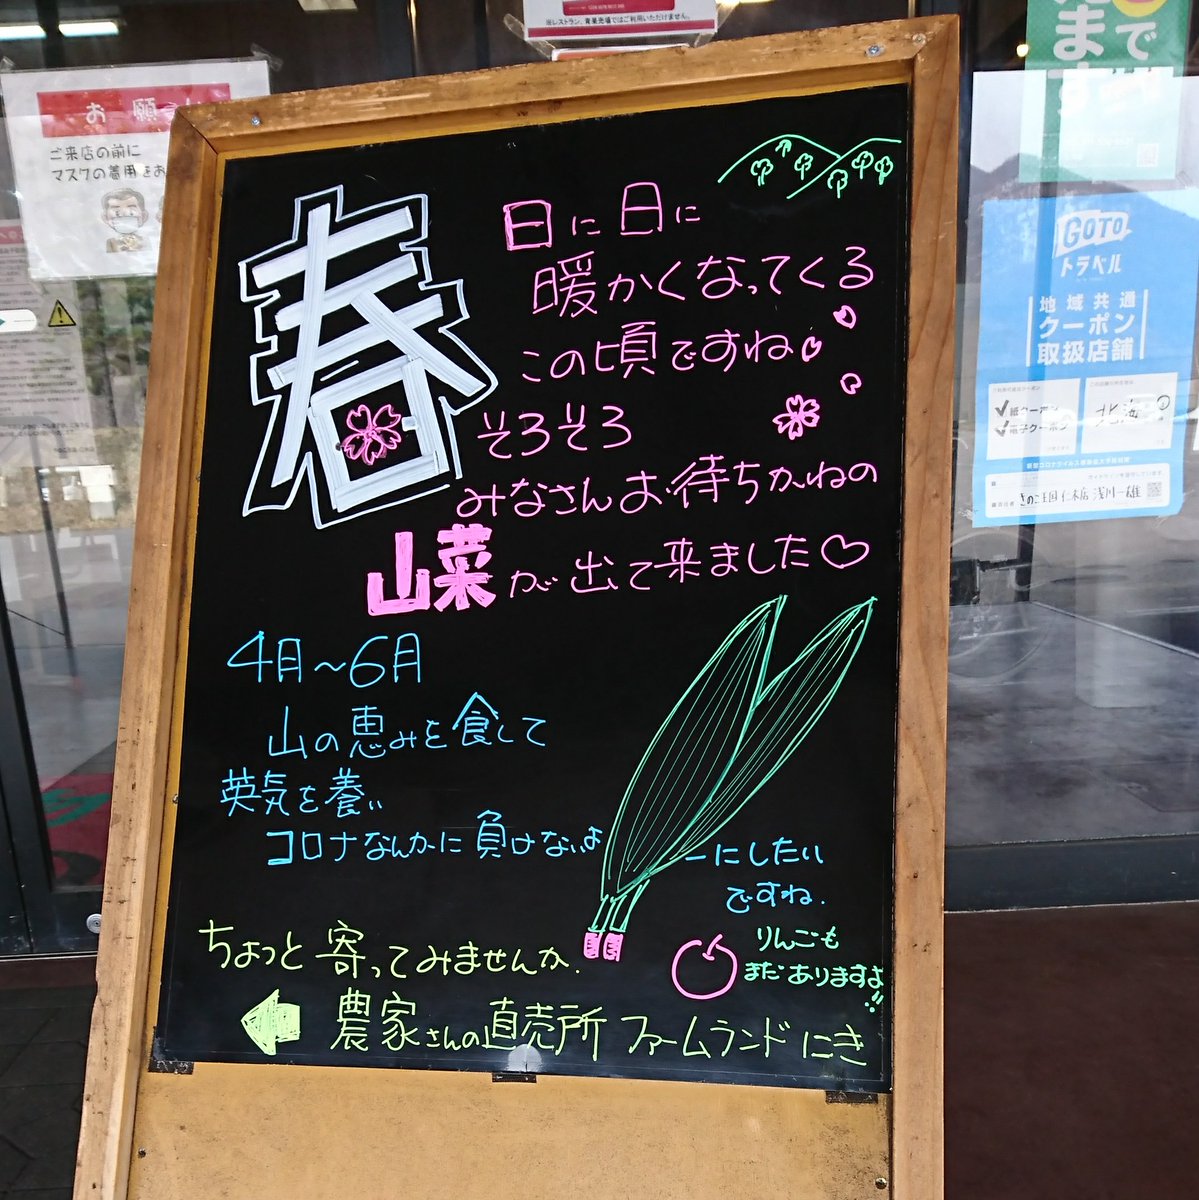 ※レストラン、青果売場ではご利用いただけません。
お願い
ご来店の前に
マスクの着用をお
ます
で
春
日に日に
暖かくなってくる
この頃ですね
そろそろ
みなさんお待ちかねの
山菜が出て来ました♡
4月〜6月
山の恵みを食して
英気を養い
コロナなんかに負けないよ
ーにしたい
ですね.
りんごも
まだありますよ!!
ちょっと寄ってみませんか.
農家さんの直売所 ファームランドにき
GOTO
トラベル
地域共通
クーポン
取扱店舗
紙クーポン
電子クーポン
北海
きのこ王国 仁木店 浅川一雄